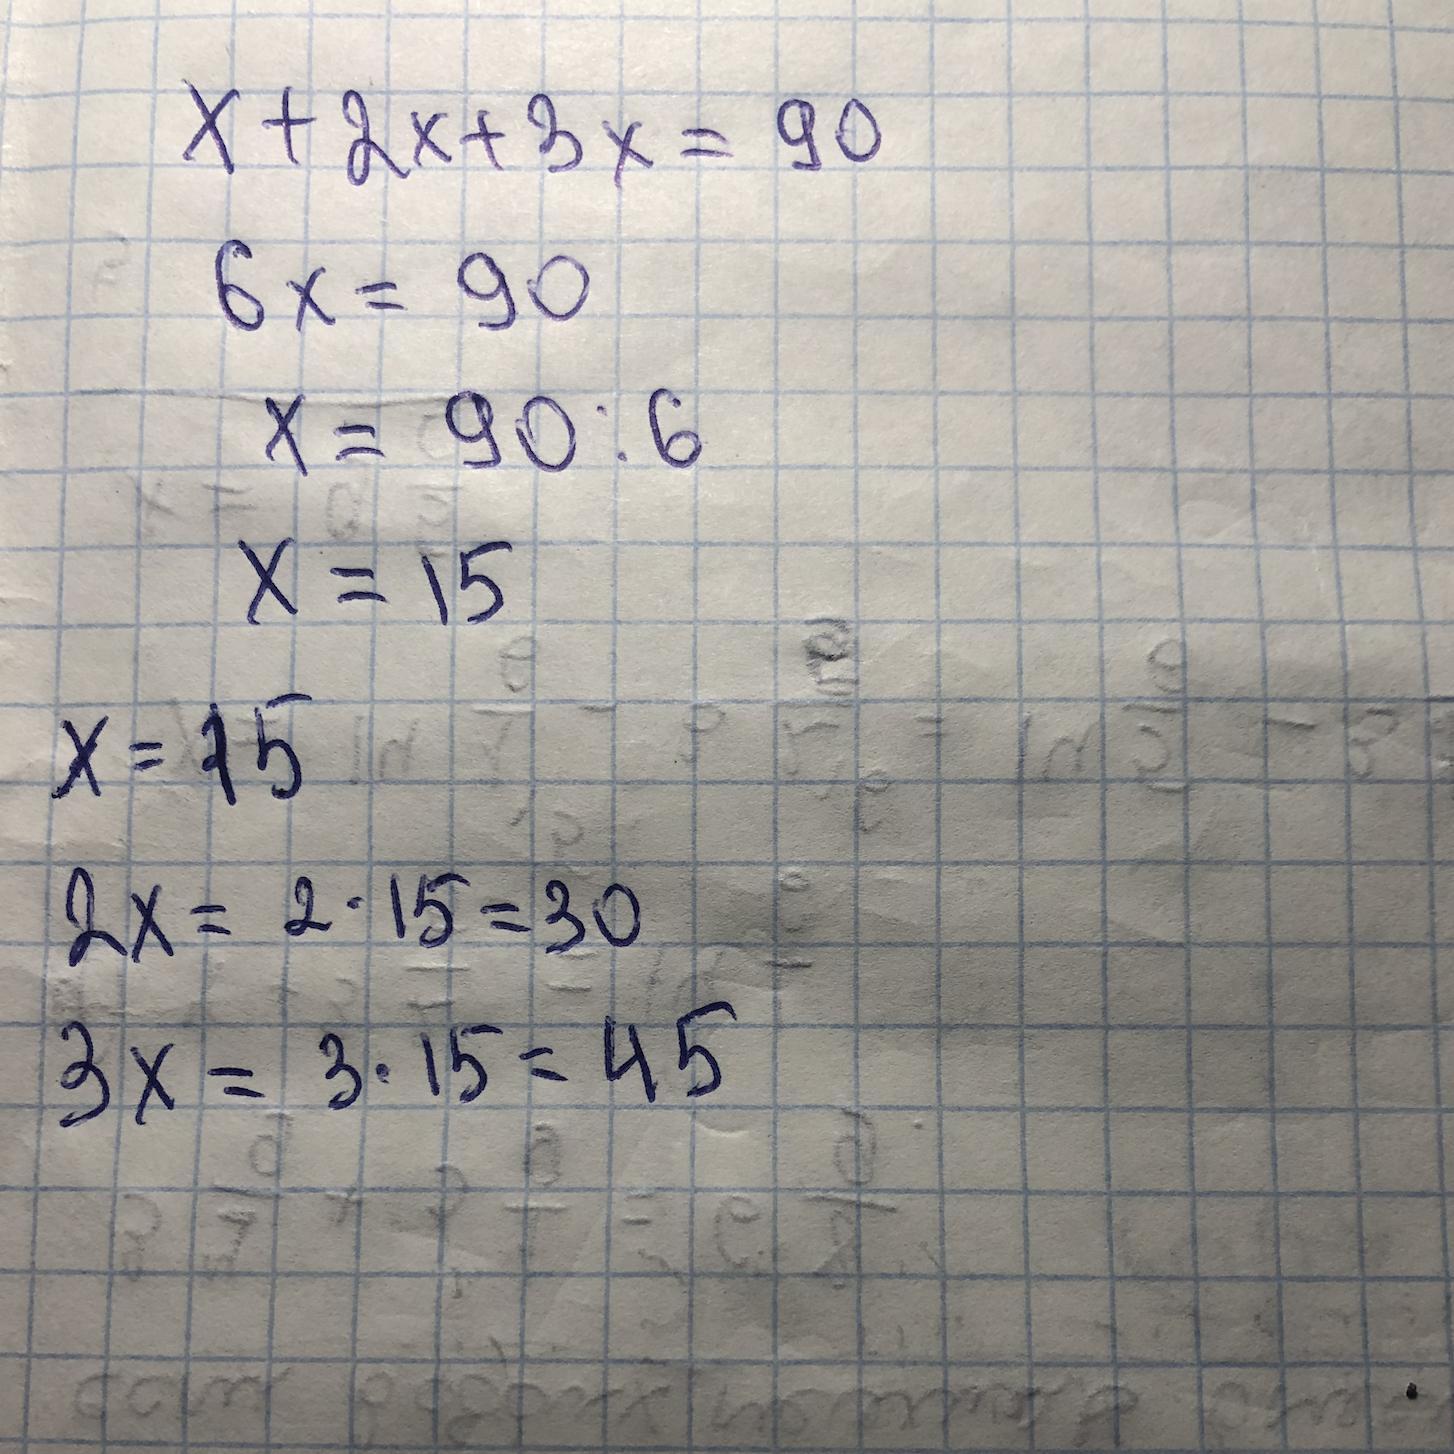 x+2x+3x=90
6x=90
x=90:6
x=15
x=15
2x=2·15=30
3x=3·15=45